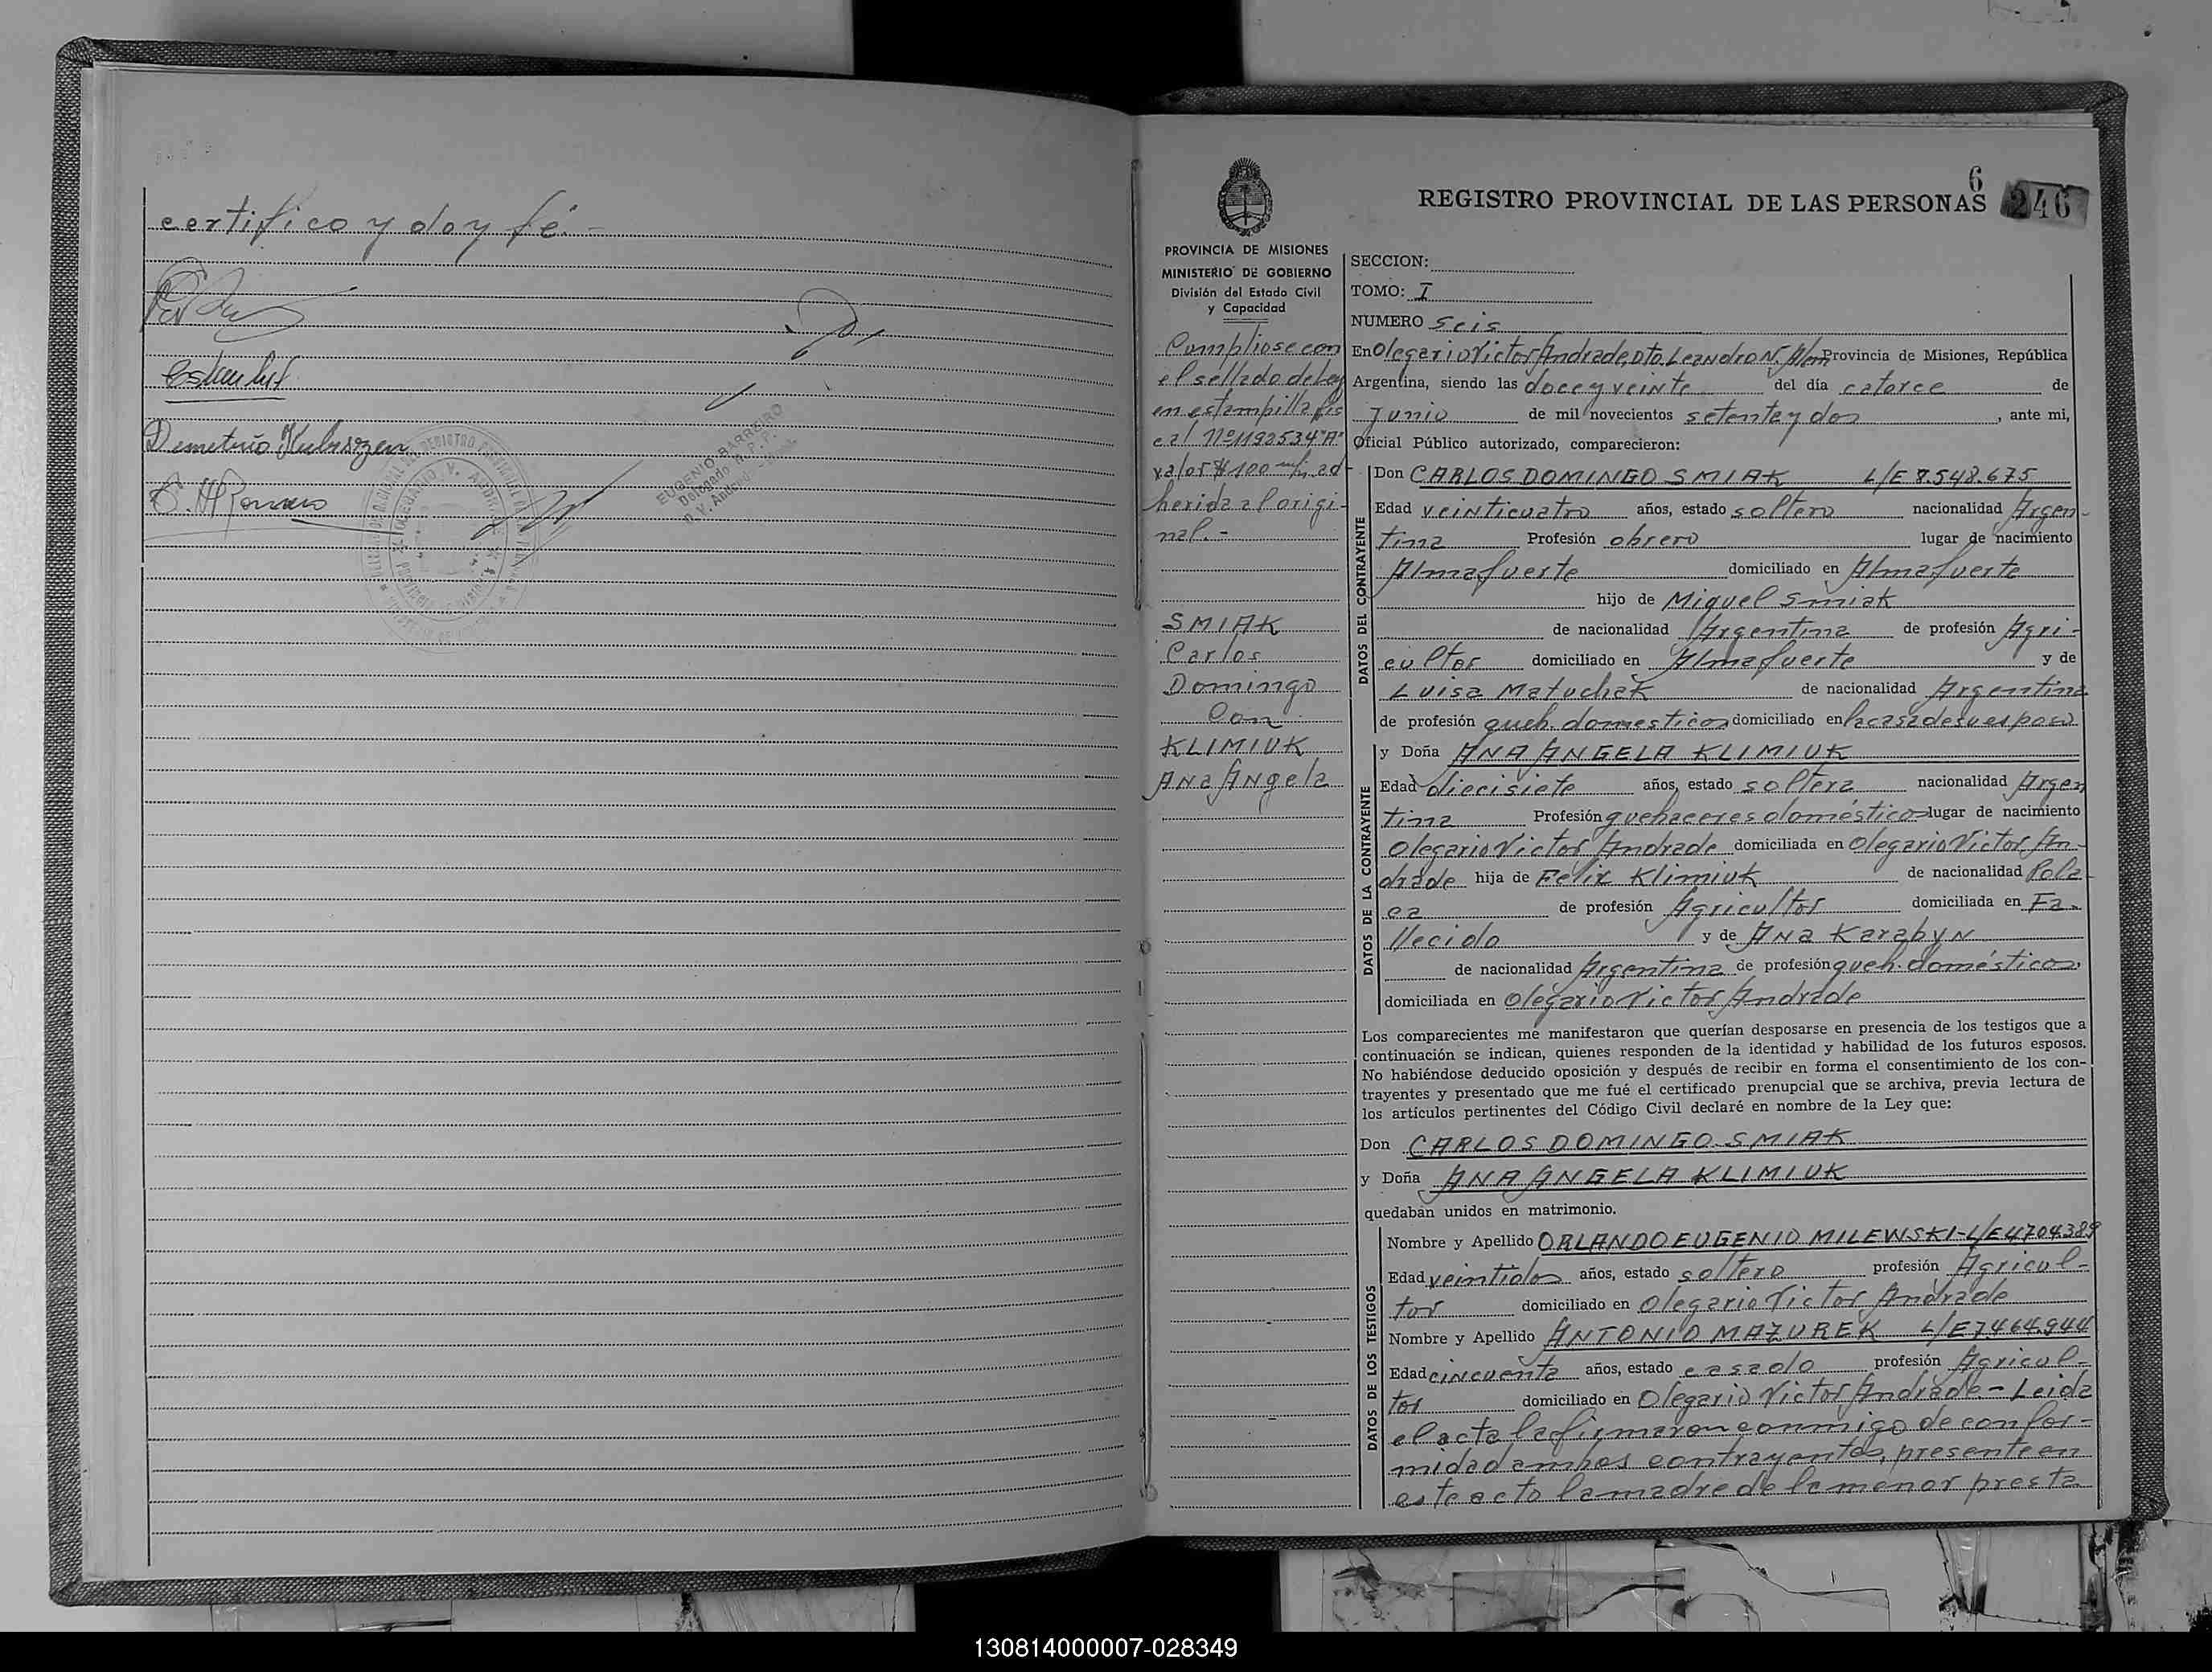 certifico y doy fé.-
Demetrio
EUGENIO BARRERO
Delegado R. P. P.
O. V. Andrade - Misiones
6
246
REGISTRO PROVINCIAL DE LAS PERSONAS
PROVINCIA DE MISIONES
MINISTERIO DE GOBIERNO
División del Estado Civil
y Capacidad
Cumpliose con
el sellado de Ley
en estampilla fis
cal Nº1192534"A"
valor $100 m/n ad-
herida al origi-
nal.-
SMIAK
Carlos
Domingo
Con
KLIMIUK
Ana Angela
SECCION:
TOMO: I
NUMERO Seis
En Olegario Victor Andrade, Dto. Leandro N. Alem Provincia de Misiones, República
Argentina, siendo las doce y veinte del día catorce de
Junio de mil novecientos setenta y dos, ante mi,
Oficial Público autorizado, comparecieron:
DATOS DEL CONTRAYENTE
Don CARLOS DOMINGO SMIAK L/E 8.548.675
Edad veinticuatro años, estado soltero nacionalidad Argen-
tina Profesión obrero lugar de nacimiento
Almafuerte domiciliado en Almafuerte
hijo de Miguel Smiak
de nacionalidad Argentina de profesión Agri-
cultor domiciliado en Almafuerte y de
Luisa Matuchak de nacionalidad Argentina
de profesión queh. domesticos domiciliado en la casa de su esposo
DATOS DE LA CONTRAYENTE
y Doña ANA ANGELA KLIMIUK
Edad diecisiete años, estado soltera nacionalidad Argen
tina Profesión quehaceres domésticos lugar de nacimiento
Olegario Victor Andrade domiciliada en Olegario Victor An-
drade hija de Felix Klimiuk de nacionalidad Pola-
ca de profesión Agricultor domiciliada en Fa-
llecido y de Ana Karabyn
de nacionalidad Argentina de profesión queh. domésticos
domiciliada en Olegario Victor Andrade
Los comparecientes me manifestaron que querían desposarse en presencia de los testigos que a
continuación se indican, quienes responden de la identidad y habilidad de los futuros esposos.
No habiéndose deducido oposición y después de recibir en forma el consentimiento de los con-
trayentes y presentado que me fué el certificado prenupcial que se archiva, previa lectura de
los artículos pertinentes del Código Civil declaré en nombre de la Ley que:
Don CARLOS DOMINGO SMIAK
y Doña ANA ANGELA KLIMIUK
quedaban unidos en matrimonio.
DATOS DE LOS TESTIGOS
Nombre y Apellido ORLANDO EUGENIO MILEWSKI-L/E 4704389
Edad veintidos años, estado soltero profesión Agricul-
tor domiciliado en Olegario Victor Andrade
Nombre y Apellido ANTONIO MAZUREK L/E 7.464.944
Edad cincuenta años, estado casado profesión Agricul-
tor domiciliado en Olegario Victor Andrade - Leida
el acta la firmaron conmigo de confor-
midad ambos contrayentes, presente en
este acto la madre de la menor presta
130814000007-028349